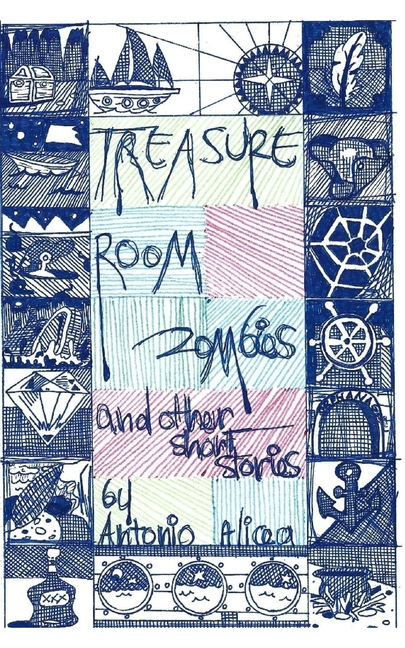 TREASURE
ROOM
Zombies
and other
short
stories
by
Antonio Alicea
XXX